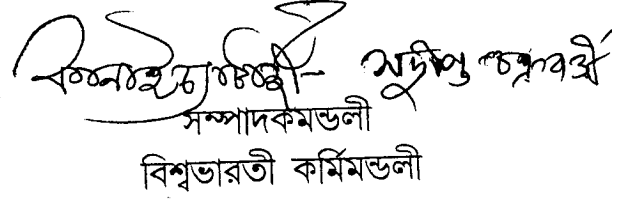 সুদীপ্ত চক্রবর্ত্তী
সম্পাদকমন্ডলী
বিশ্বভারতী কর্মিমন্ডলী